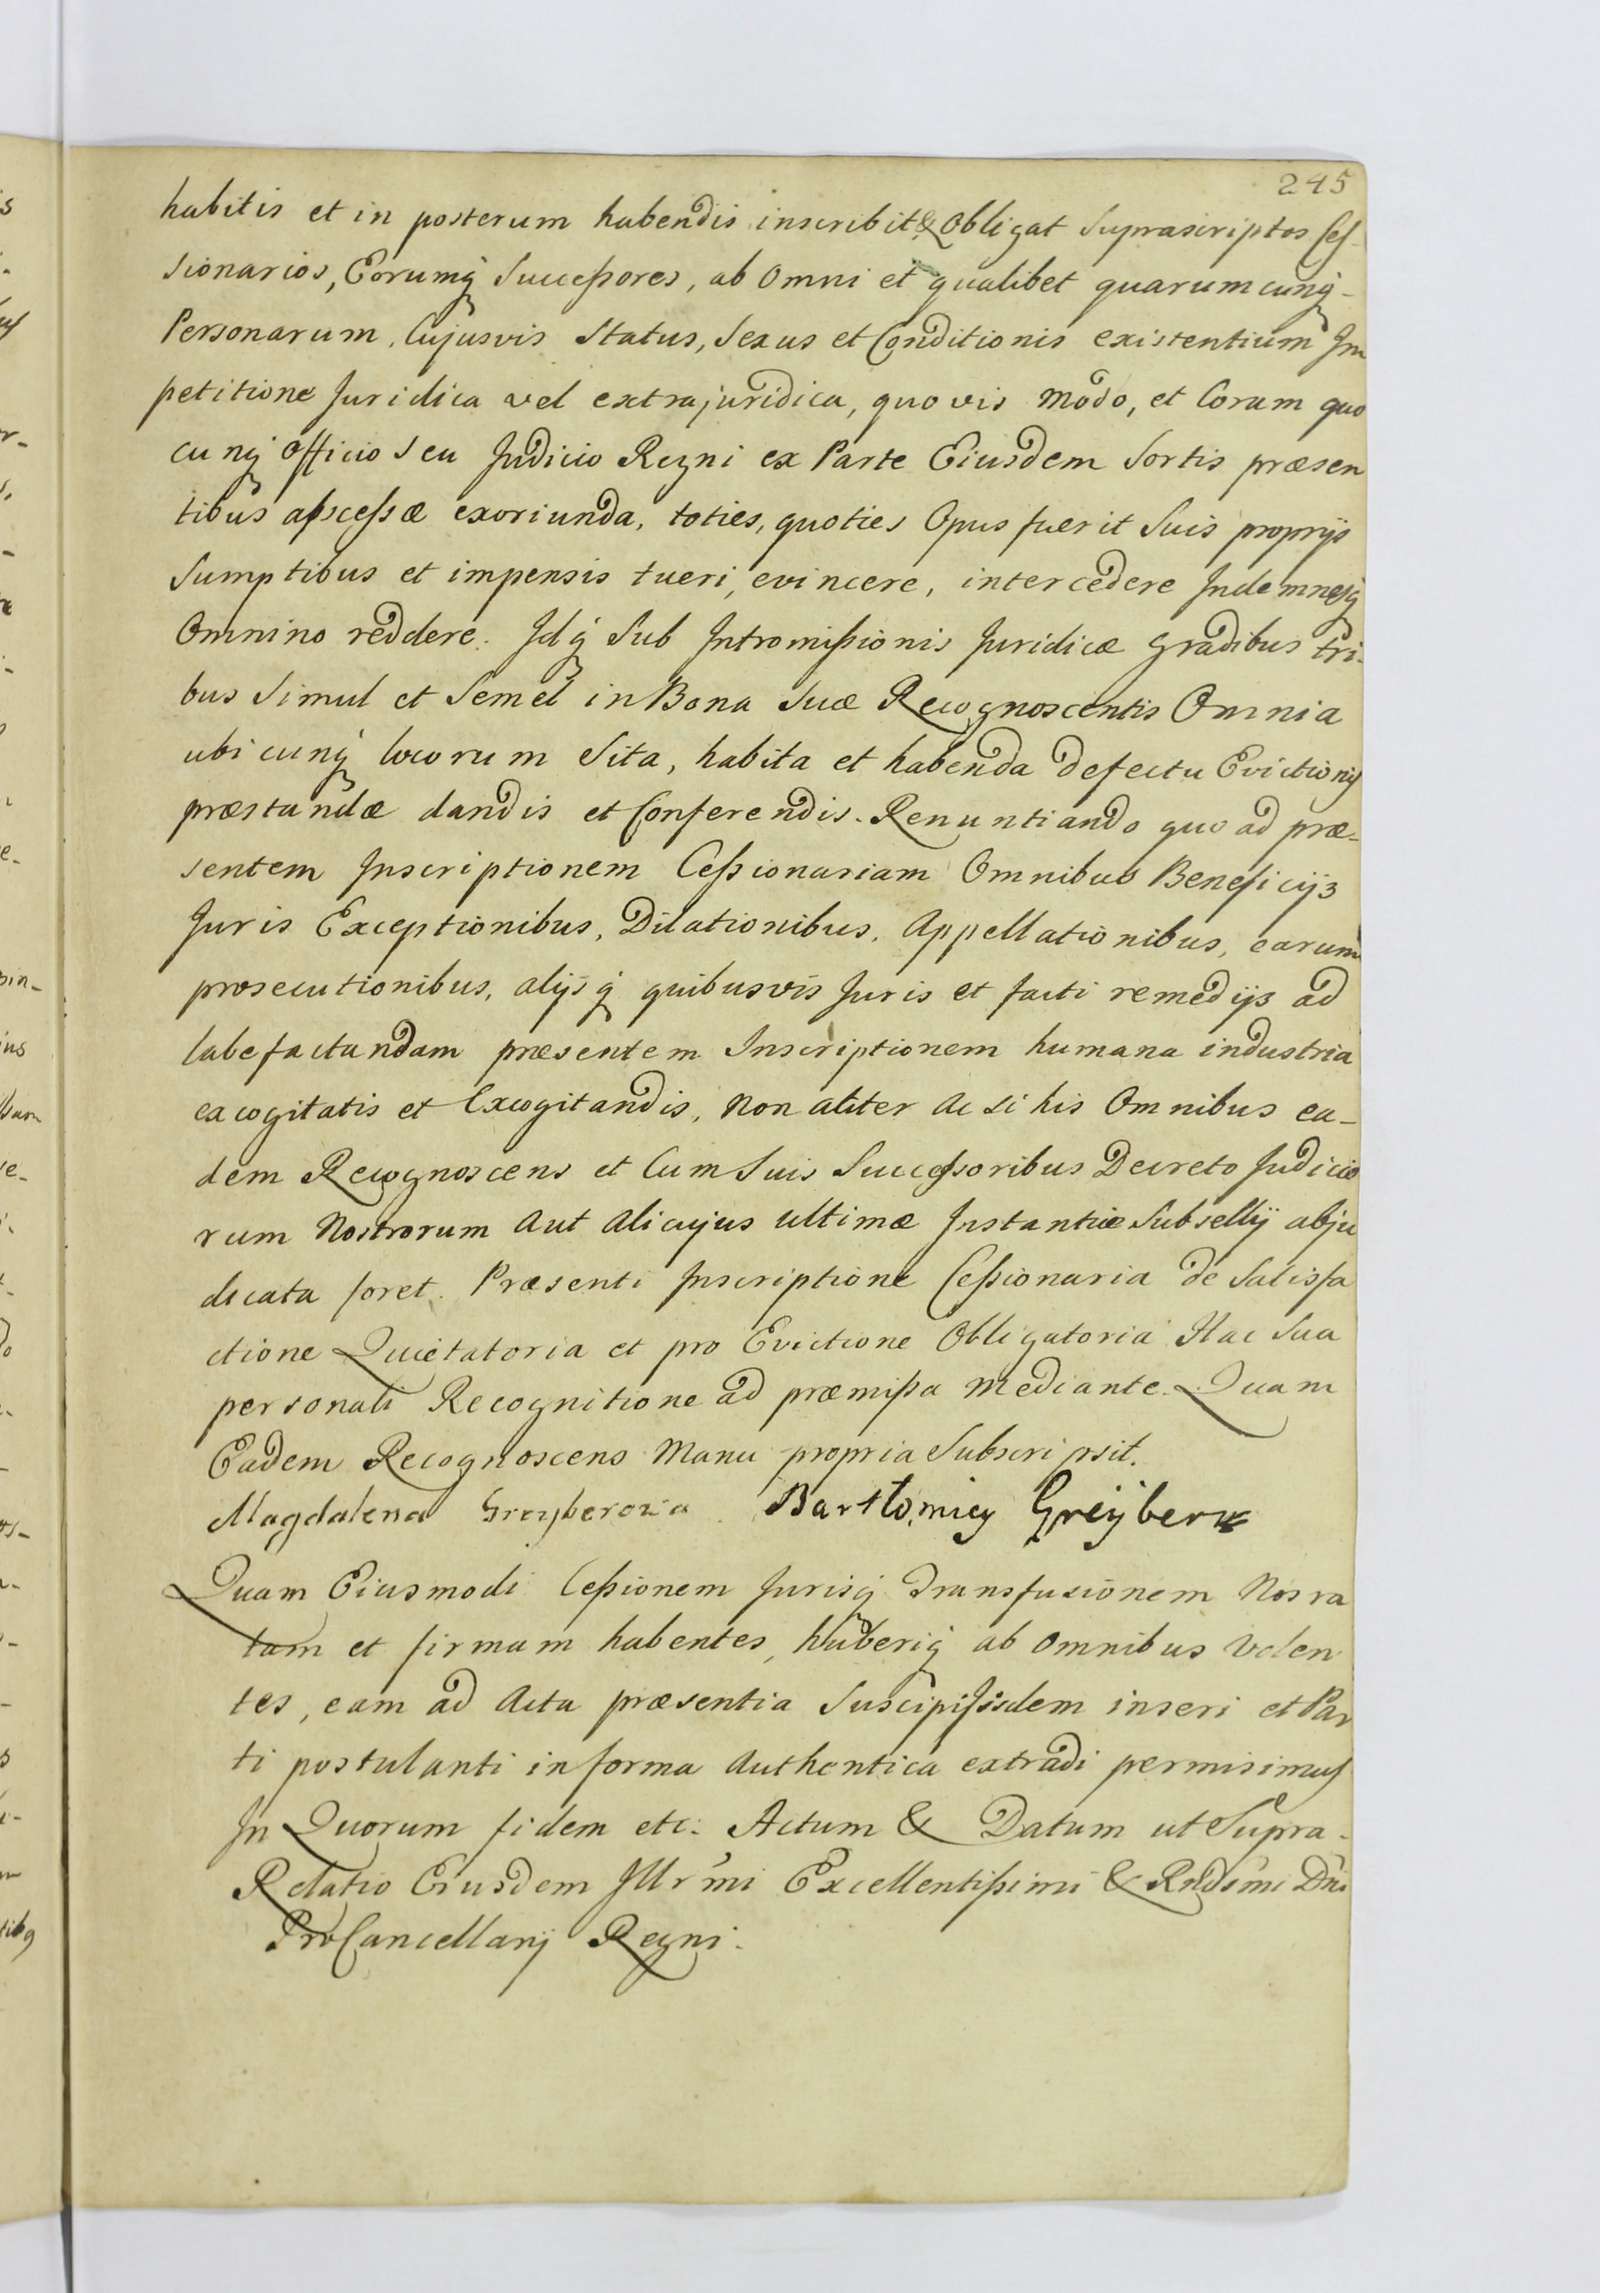 245
habitis et in posterum habendis inscribit & Obligat Suprascriptos Ces-
sionarios, Eorumq Successores, ab Omni et qualibet quarumcunq-
Personarum, Cujusvis Status, Sexus et Conditionis existentium Im
petitione Juridica vel extrajuridica, quovis modo, et Coram quo
cunq Officio Seu Judicio Regni ex Parte Eiusdem Sortis præsen
tibus abscessæ exoriunda, toties, quoties Opus fuerit Suis proprijs
Sumptibus et impensis tueri, evincere, intercedere Indemnesq
Omnino reddere. Idq Sub Intromissionis Juridicæ Gradibus tri-
bus Simul et Semel in Bona Suæ Recognoscentis Omnia
ubicunq locorum Sita, habita et habenda defectu Evictionis
præstandæ dandis et Conferendis. Renuntiando quo ad præ-
sentem Inscriptionem Cessionariam Omnibus Beneficijs
Juris Exceptionibus, Dilationibus, Appellationibus, earum
prosecutionibus, alijsq quibusvis Juris et facti remedijs ad
labefactandam præsentem Inscriptionem humana industria
excogitatis et Excogitandis, Non aliter ac si his Omnibus ea-
dem Recognoscens et Cum Suis Successoribus Decreto Judicio
rum Nostrorum aut alicujus ultimæ Instantiæ Subsellij abju
dicata foret. Præsenti Inscriptione Cessionaria de Satisfa
ctione Quietatoria et pro Evictione Obligatoria Hac Sua
personali Recognitione ad præmissa mediante. Quam
Eadem Recognoscens Manu propria Subscripsit.
Magdalena Greyberowa. Bartłomiey Greÿber
Quam Eiusmodi Cessionem Jurisq Transfusionem Nos ra
tam et firmam habentes, haberiq ab Omnibus Volen
tes, eam ad Acta præsentia Suscipi Iisdem inseri et Par
ti postulanti in forma Authentica extradi permisimus
In Quorum fidem etc: Actum & Datum ut Supra-
Relatio Eiusdem Illrmi Excellentissimi & Rndsmi Dni
ProCancellarij Regni.